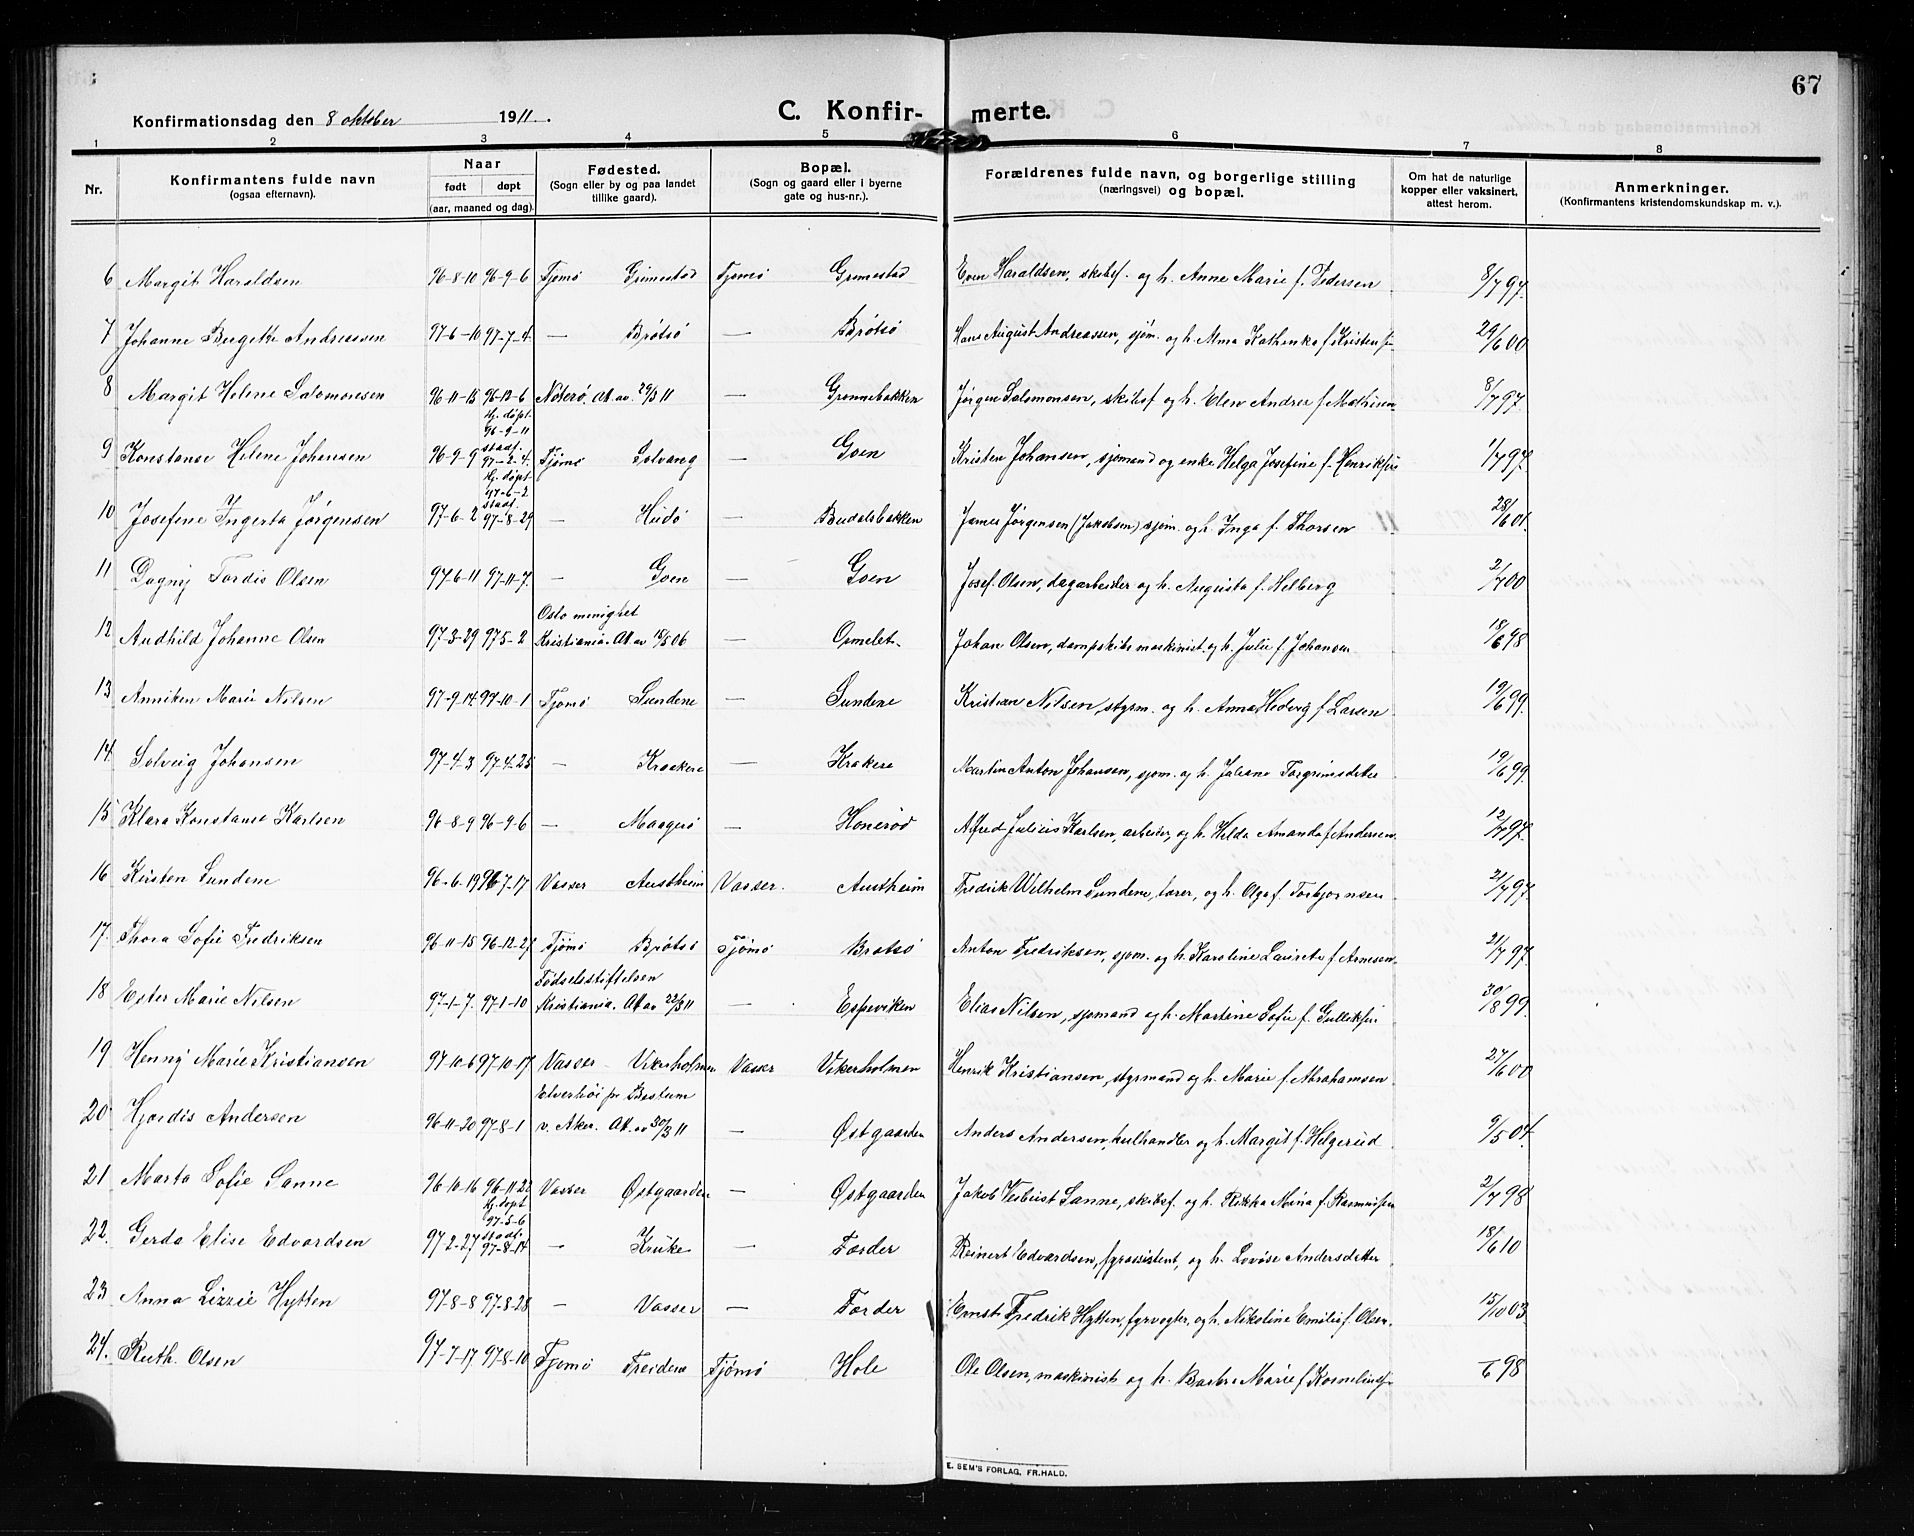 67
Konfirmationsdag den 8 oktober 1911. C. Konfirmerte.
1 2 3 4 5 6 7 8
Nr. Konfirmantens fulde navn (ogsaa efternavn). Naar født døpt (aar, maaned og dag). Fødested. (Sogn eller by og paa landet tillike gaard). Bopæl. (Sogn og gaard eller i byerne gate og hus-nr.). Forældrenes fulde navn, og borgerlige stilling (næringsvei) og bopæl. Om hat de naturlige kopper eller vaksinert, attest herom. Anmerkninger. (Konfirmantens kristendomskundskap m. v.).
6 Margit Haraldsen 96-8-10 96-9-6 Tjømø Grimestad Tjømø Grimestad Even Haraldsen, skibsf. og h. Anne Marie f. Pedersen 8/7 97.
7 Johanne Birgitte Andreassen 97-6-10 97-7-4 — Brøtsø — Brøtsø Hans August Andreassen, sjøm. og h. Alma Kathinka f. Kristens. 29/6 00
8 Margit Helene Salomonsen 96-11-15 96-12-6 Nøterø. At. av. 29/3 11 — Grønnebakken Jørgen Salomonsen, skibsf og h. Elen Andrea f. Mathisen 8/7 97.
9 Konstanse Helene Johansen 96-9-9 hj. døpt 96-9-11 stadf. 97-2-4. Tjømø Solvang — Goen Kristen Johansen, sjømand og enke Helga Josefine f. Henriksen 1/7 97.
10 Josefine Ingerta Jørgensen 97-6-2 hj. døpt 97-6-2 stadf. 97-8-29 — Hudø — Budalsbakken James Jørgensen (Jakobsen) sjøm. og h. Inga f. Thorsen 28/6 01.
11 Dagny Tordis Olsen 97-6-11 97-11-7. — Goen — Goen Josef Olsen, dagarbeider og h. Augusta f. Helberg 2/7 00
12 Audhild Johanne Olsen 97-3-29 97-5-2 Oslo menighet Kristiania. At. av 15/5 06 — Ormelet Johan Olsen, dampskibsmaskinist. og h. Julie f. Johansen 18/6 98
13 Anniken Marie Nilsen 97-9-14 97-10-1 Tjømø Sundene — Sundene Kristian Nilsen, styrm. og h. Anna Hedvig f. Larsen 19/6 99.
14. Solveig Johansen 97-4-3 97-4-25 — Kraakere — Krakere Martin Anton Johansen, sjøm. og h. Juliane Torgrimsdatter 19/6 99.
15 Klara Konstanse Karlsen 96-8-9 96-9-6 — Maagerø — Honerød Alfred Julius Karlsen, arbeider, og h. Hilda Amanda f. Andersen 12/7 97.
16 Kirsten Sundene 96-6-19 96-7-17 Vasser Austheim Vasser. Austheim Fredrik Wilhelm Sundene, lærer, og h. Olga f. Torbjørnsen 21/7 97.
17. Thora Sofie Fredriksen 96-11-15 96-12-27 Tjømø Brøtsø Tjømø Brøtsø Anton Fredriksen, sjøm. og h. Karoline Laurete f. Arnesen 21/7 97.
18 Ester Marie Nilsen 97-1-7. 97-1-10 Fødselsstiftelsen Kristiania. At. av 22/3 11 — Espeviken Elias Nilsen, sjømand og h. Martine Sofie f. Gulliksen 30/8 99.
19 Henny Marie Kristiansen 97-10-6 97-10-17 Vasser Vikerholmen Vasser Vikerholmen Henrik Kristiansen, styrmand og h. Marie f. Abrahamsen 27/6 00
20 Hjørdis Andersen 96-11-20 97-8-1 Elverhøi pr Bestum v. Aker. At. av 30/3 11 — Østgaarden Anders Andersen, kulhandler og h. Margit f. Helgerud 9/5 04.
21 Marta Sofie Sanne 96-10-16 96-11-22 Vasser Østgaarden — Østgaarden Jakob Sanne, skibsf. og h. Rikka Maria f. Rasmussen 2/7 98
22. Gerda Elise Edvardsen 97-2-27 hj. døpt 97-5-6 stadf. 97-8-14 — Kruke — Færder Reinert Edvardsen, fyrassistent, og h. Lovise Andersdatter 18/6 10
23 Anna Lizzie Hytten 97-8-8 97-8-28 — Vasser — Færder Ernst Fredrik Hytten, fyrvogter, og h. Nikoline Emilie f. Olsen. 15/10 03
24. Ruth Olsen 97-7-17 97-8-10 Tjømø Treidene Tjømø Hole Ole Olsen, maskinist og h. Barbra Marie f. Korneliusen 6 98
E. SEM'S FORLAG, FR.HALD.